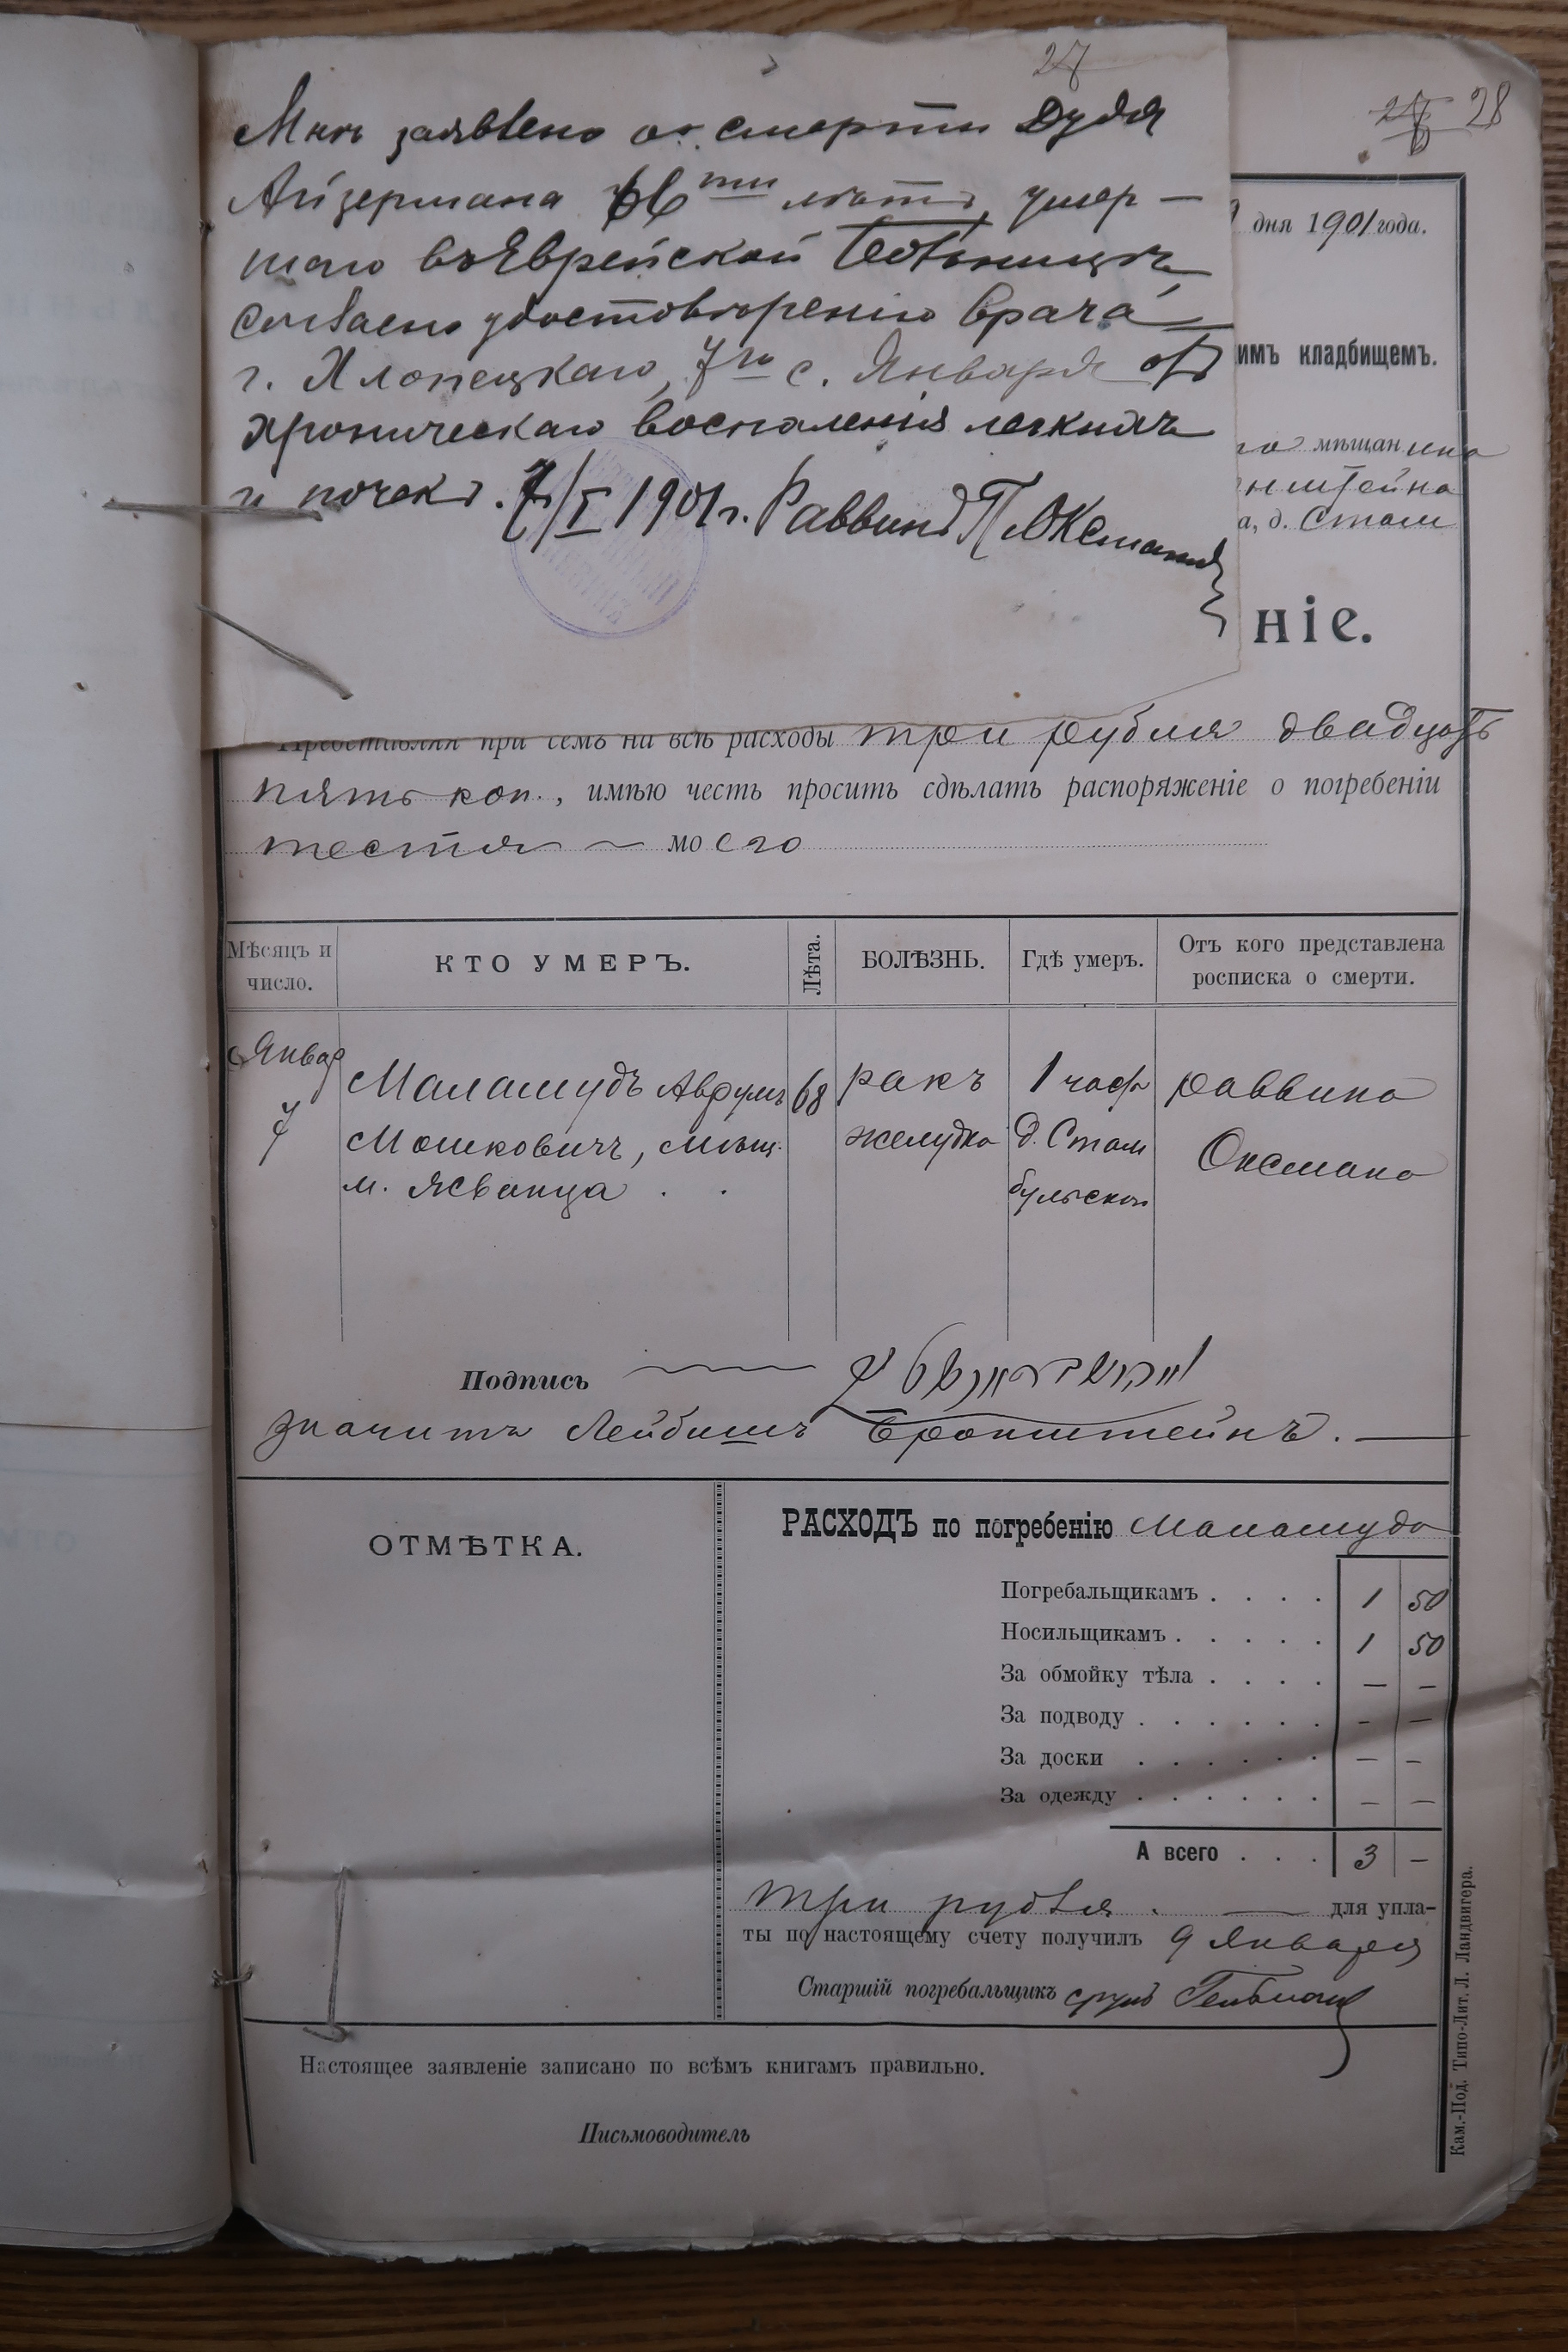 27
Мнѣ заявлено о смерти Дудя
Айзермана 66ти лѣтъ, умер-
шаго въ Еврейской Больницѣ
согласно удостовѣренію врача
г. Хлопецкаго, 7го с. Января отъ
хроническаго воспаленія легкихъ
и почекъ. 7/I 1901 г. Раввинъ П. Оксманъ
28
дня 1901 года.
имъ кладбищемъ.
го мѣщанина
нштейна
а, д. Стам
ніе.
Представляя при семъ на всѣ расходы три рубля двадцать
пять коп., имѣю честь просить сдѣлать распоряженіе о погребеніи
тестя моего
Мѣсяцъ и число.
КТО УМЕРЪ.
Лѣта.
БОЛѢЗНЬ.
Гдѣ умеръ.
Отъ кого представлена росписка о смерти.
Январ
7
Маламудъ Аврумъ
Мошковичъ, мѣщ.
м. Ясванца
68
ракъ
желудка
1 част
д. Стам
бульской
раввина
Оксмана
Подпись
значитъ Лейбишъ Бронштейнъ.
ОТМѢТКА.
РАСХОДЪ по погребенію Маламуда
Погребальщикамъ . . . . 1 50
Носильщикамъ . . . . . 1 50
За обмойку тѣла . . . . — —
За подводу . . . . . . - —
За доски . . . . . . — –
За одежду . . . . . . – —
А всего . . . 3 —
три рубля. — для упла-
ты по настоящему счету получилъ 9 Января
Старшій погребальщикъ Срулъ Гельманъ
Настоящее заявленіе записано по всѣмъ книгамъ правильно.
Письмоводитель
Кам.-Под. Типо-Лит. Л. Ландвигера.